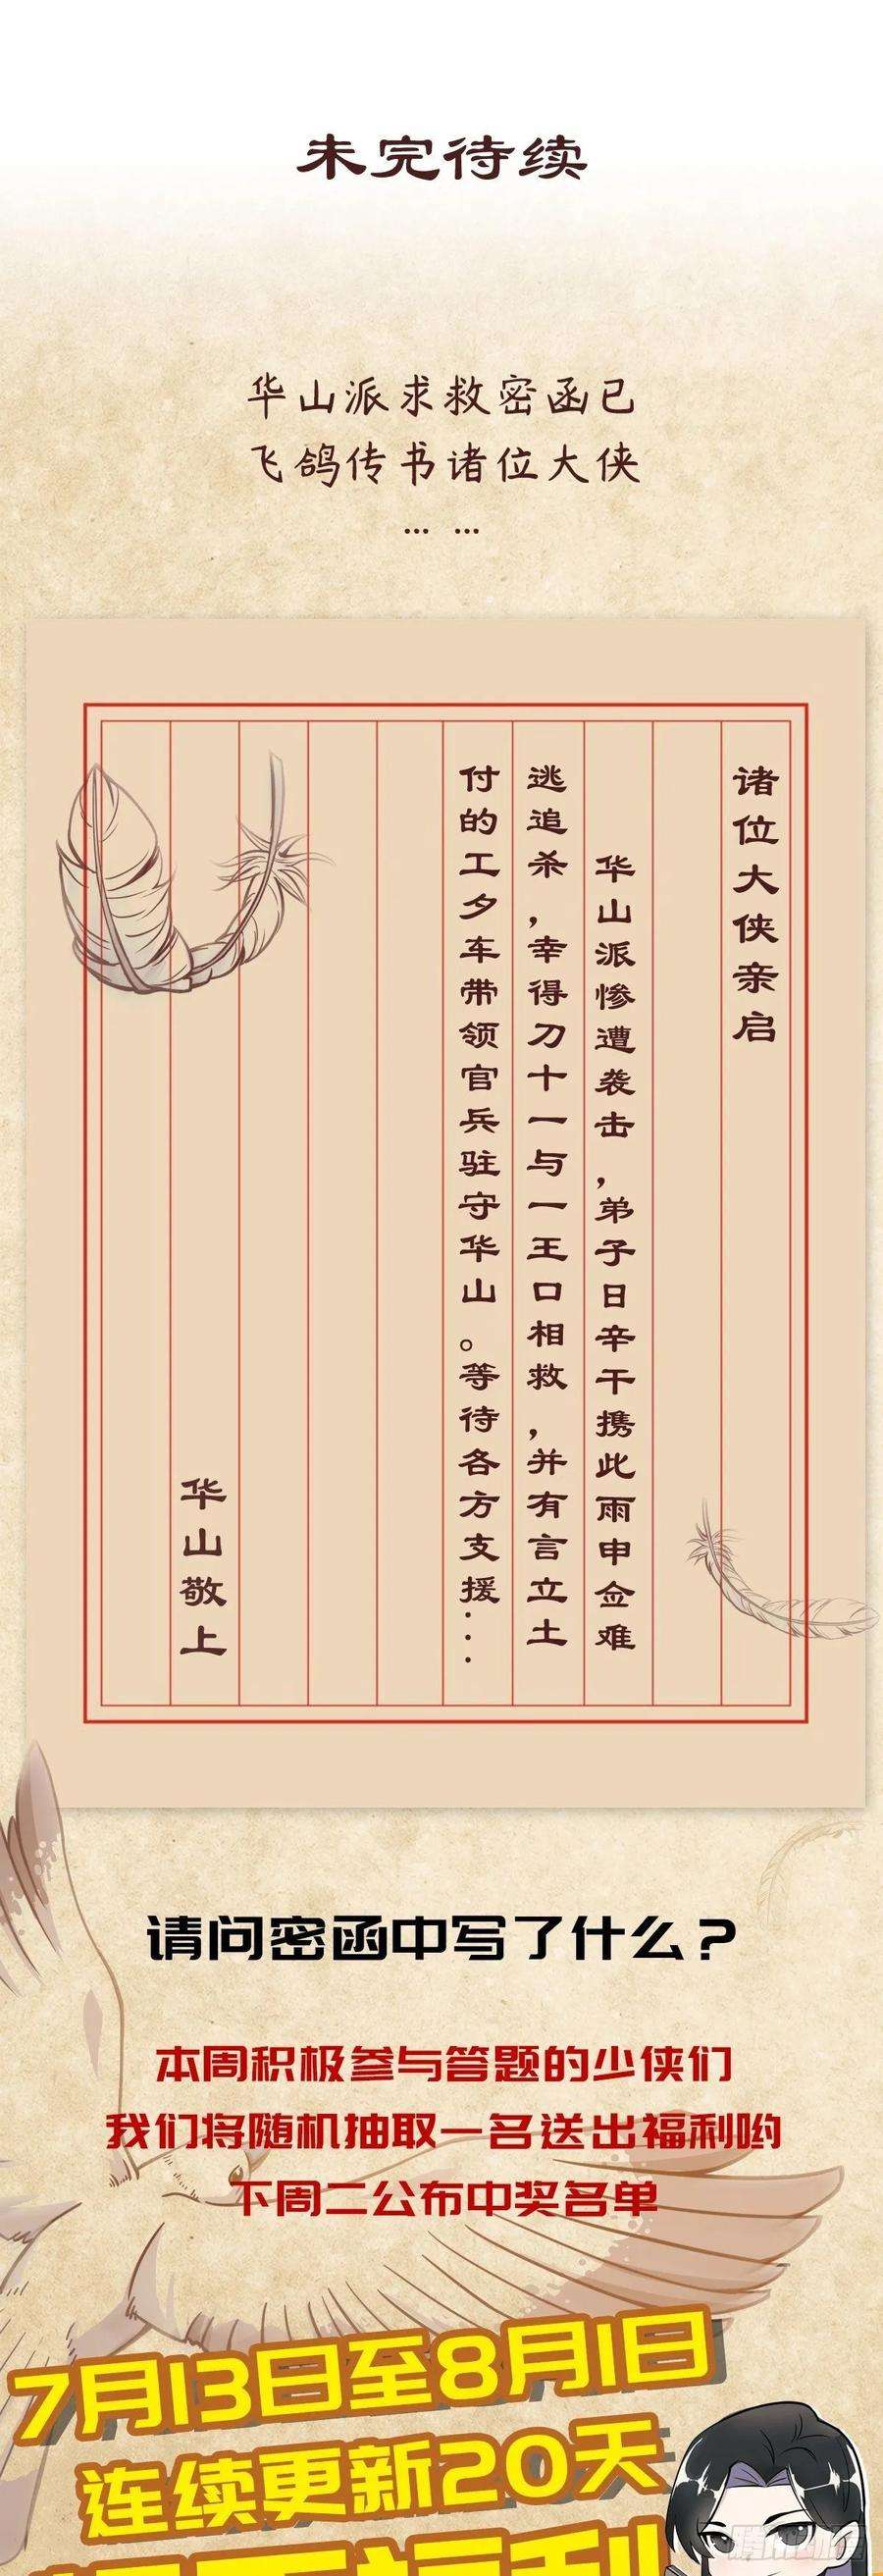 未完待续
华山派求救密函已
飞鸽传书诸位大侠
… …
诸位大侠亲启
华山派惨遭袭击，弟子日辛干携此雨申佥难
逃追杀，幸得刀十一与一王口相救，并有言立土
付的工夕车带领官兵驻守华山。等待各方支援...
华山敬上
请问密函中写了什么？
本周积极参与答题的少侠们
我们将随机抽取一名送出福利哟
下周二公布中奖名单
7月13日至8月1日
连续更新20天